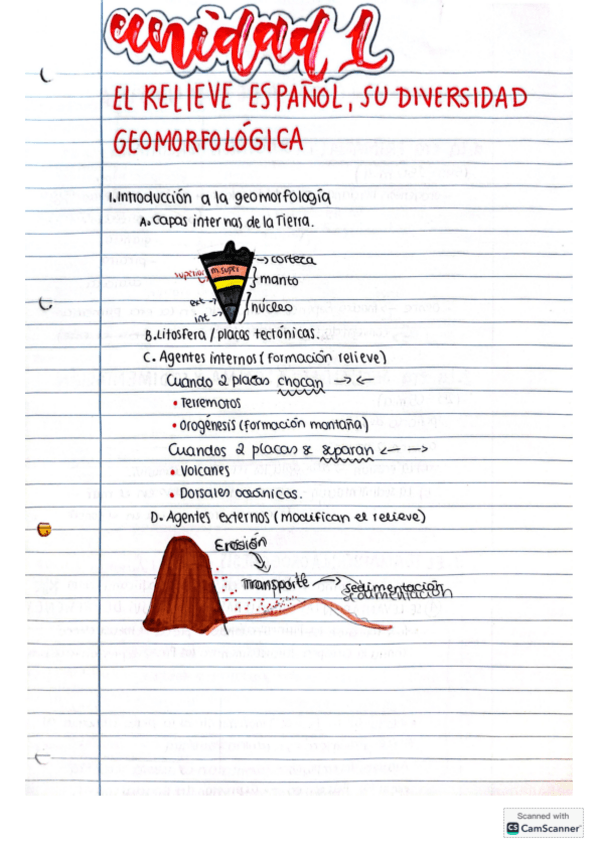 unidad 1
EL RELIEVE ESPAÑOL, SU DIVERSIDAD
GEOMORFOLÓGICA
1. Introducción a la geomorfología
A. Capas internas de la Tierra.
→ corteza
superior m. super
manto
ext →
núcleo
int →
B. Litosfera / placas tectónicas.
C. Agentes internos (formación relieve)
Cuando 2 placas chocan → ←
• Terremotos
• Orogénesis (formación montaña)
Cuandos 2 placas se separan ← →
• Volcanes
• Dorsales oceánicas.
D. Agentes externos (modifican el relieve)
Erosión
Transporte → sedimentación
sedimentación
Scanned with
CS CamScanner